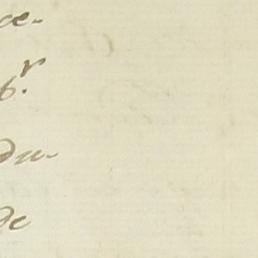 ce-
6.r
du-
de